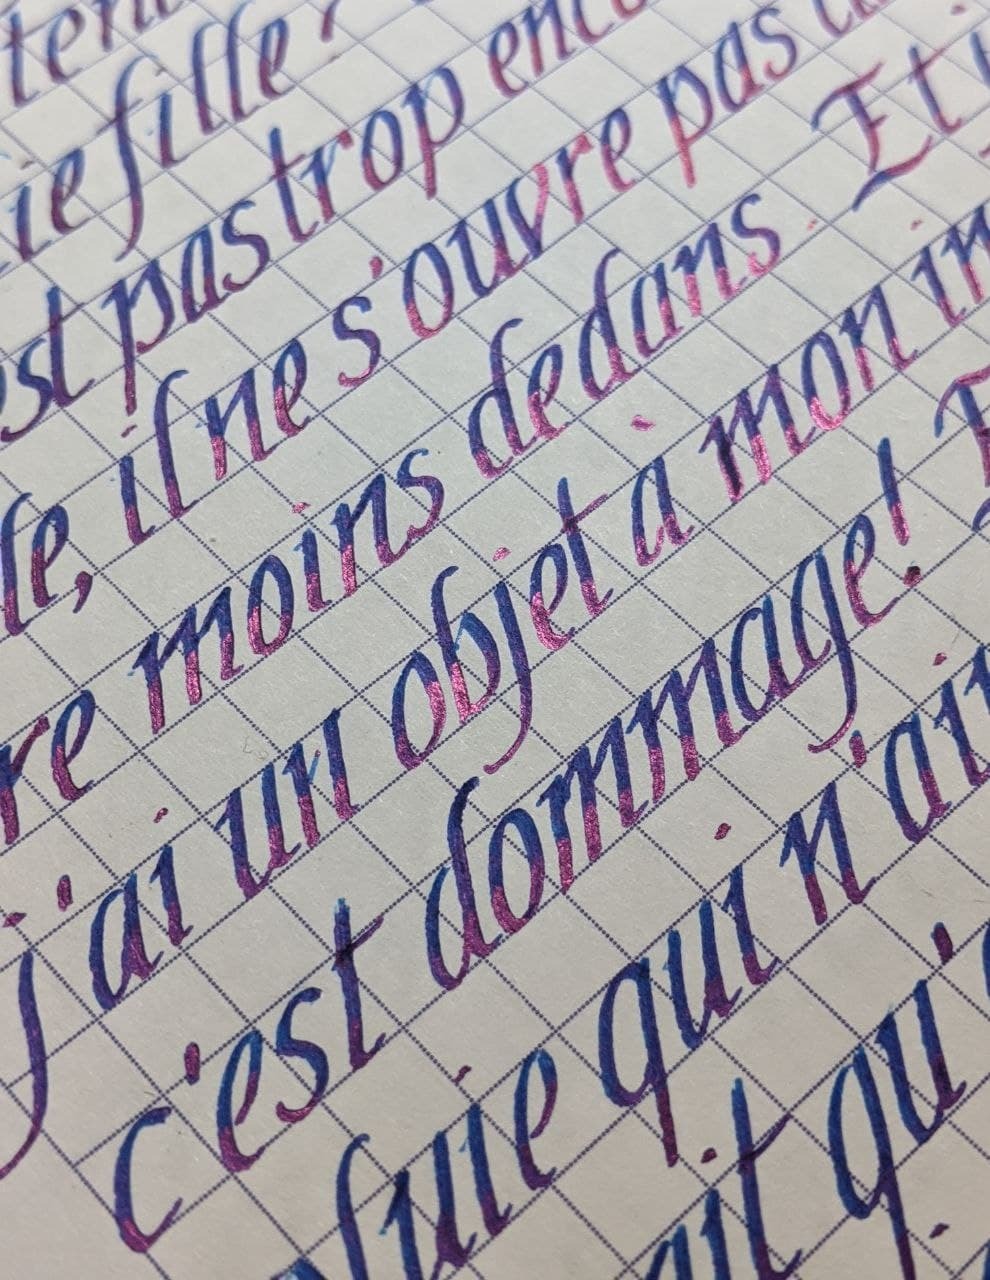 ie fille ?
st pas trop enco
le, il ne s'ouvre pas
re moins dedans. Et
j'ai un objet a mon in
c'est dommage !
qui n'ai
ait qu'